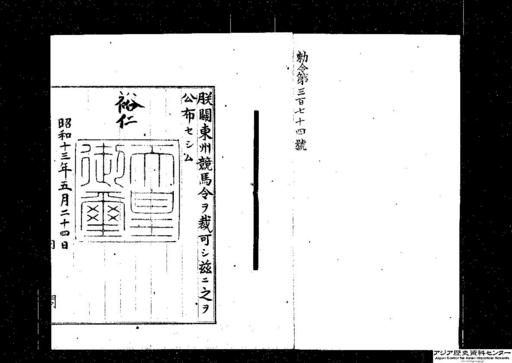 勅令第三百七十四號
朕關東州競馬令ヲ裁可シ茲ニ之ヲ
公布セシム
裕仁
天皇
御璽
昭和十三年五月二十四日
アジア歴史資料センター
Japan Center for Asian Historical Records